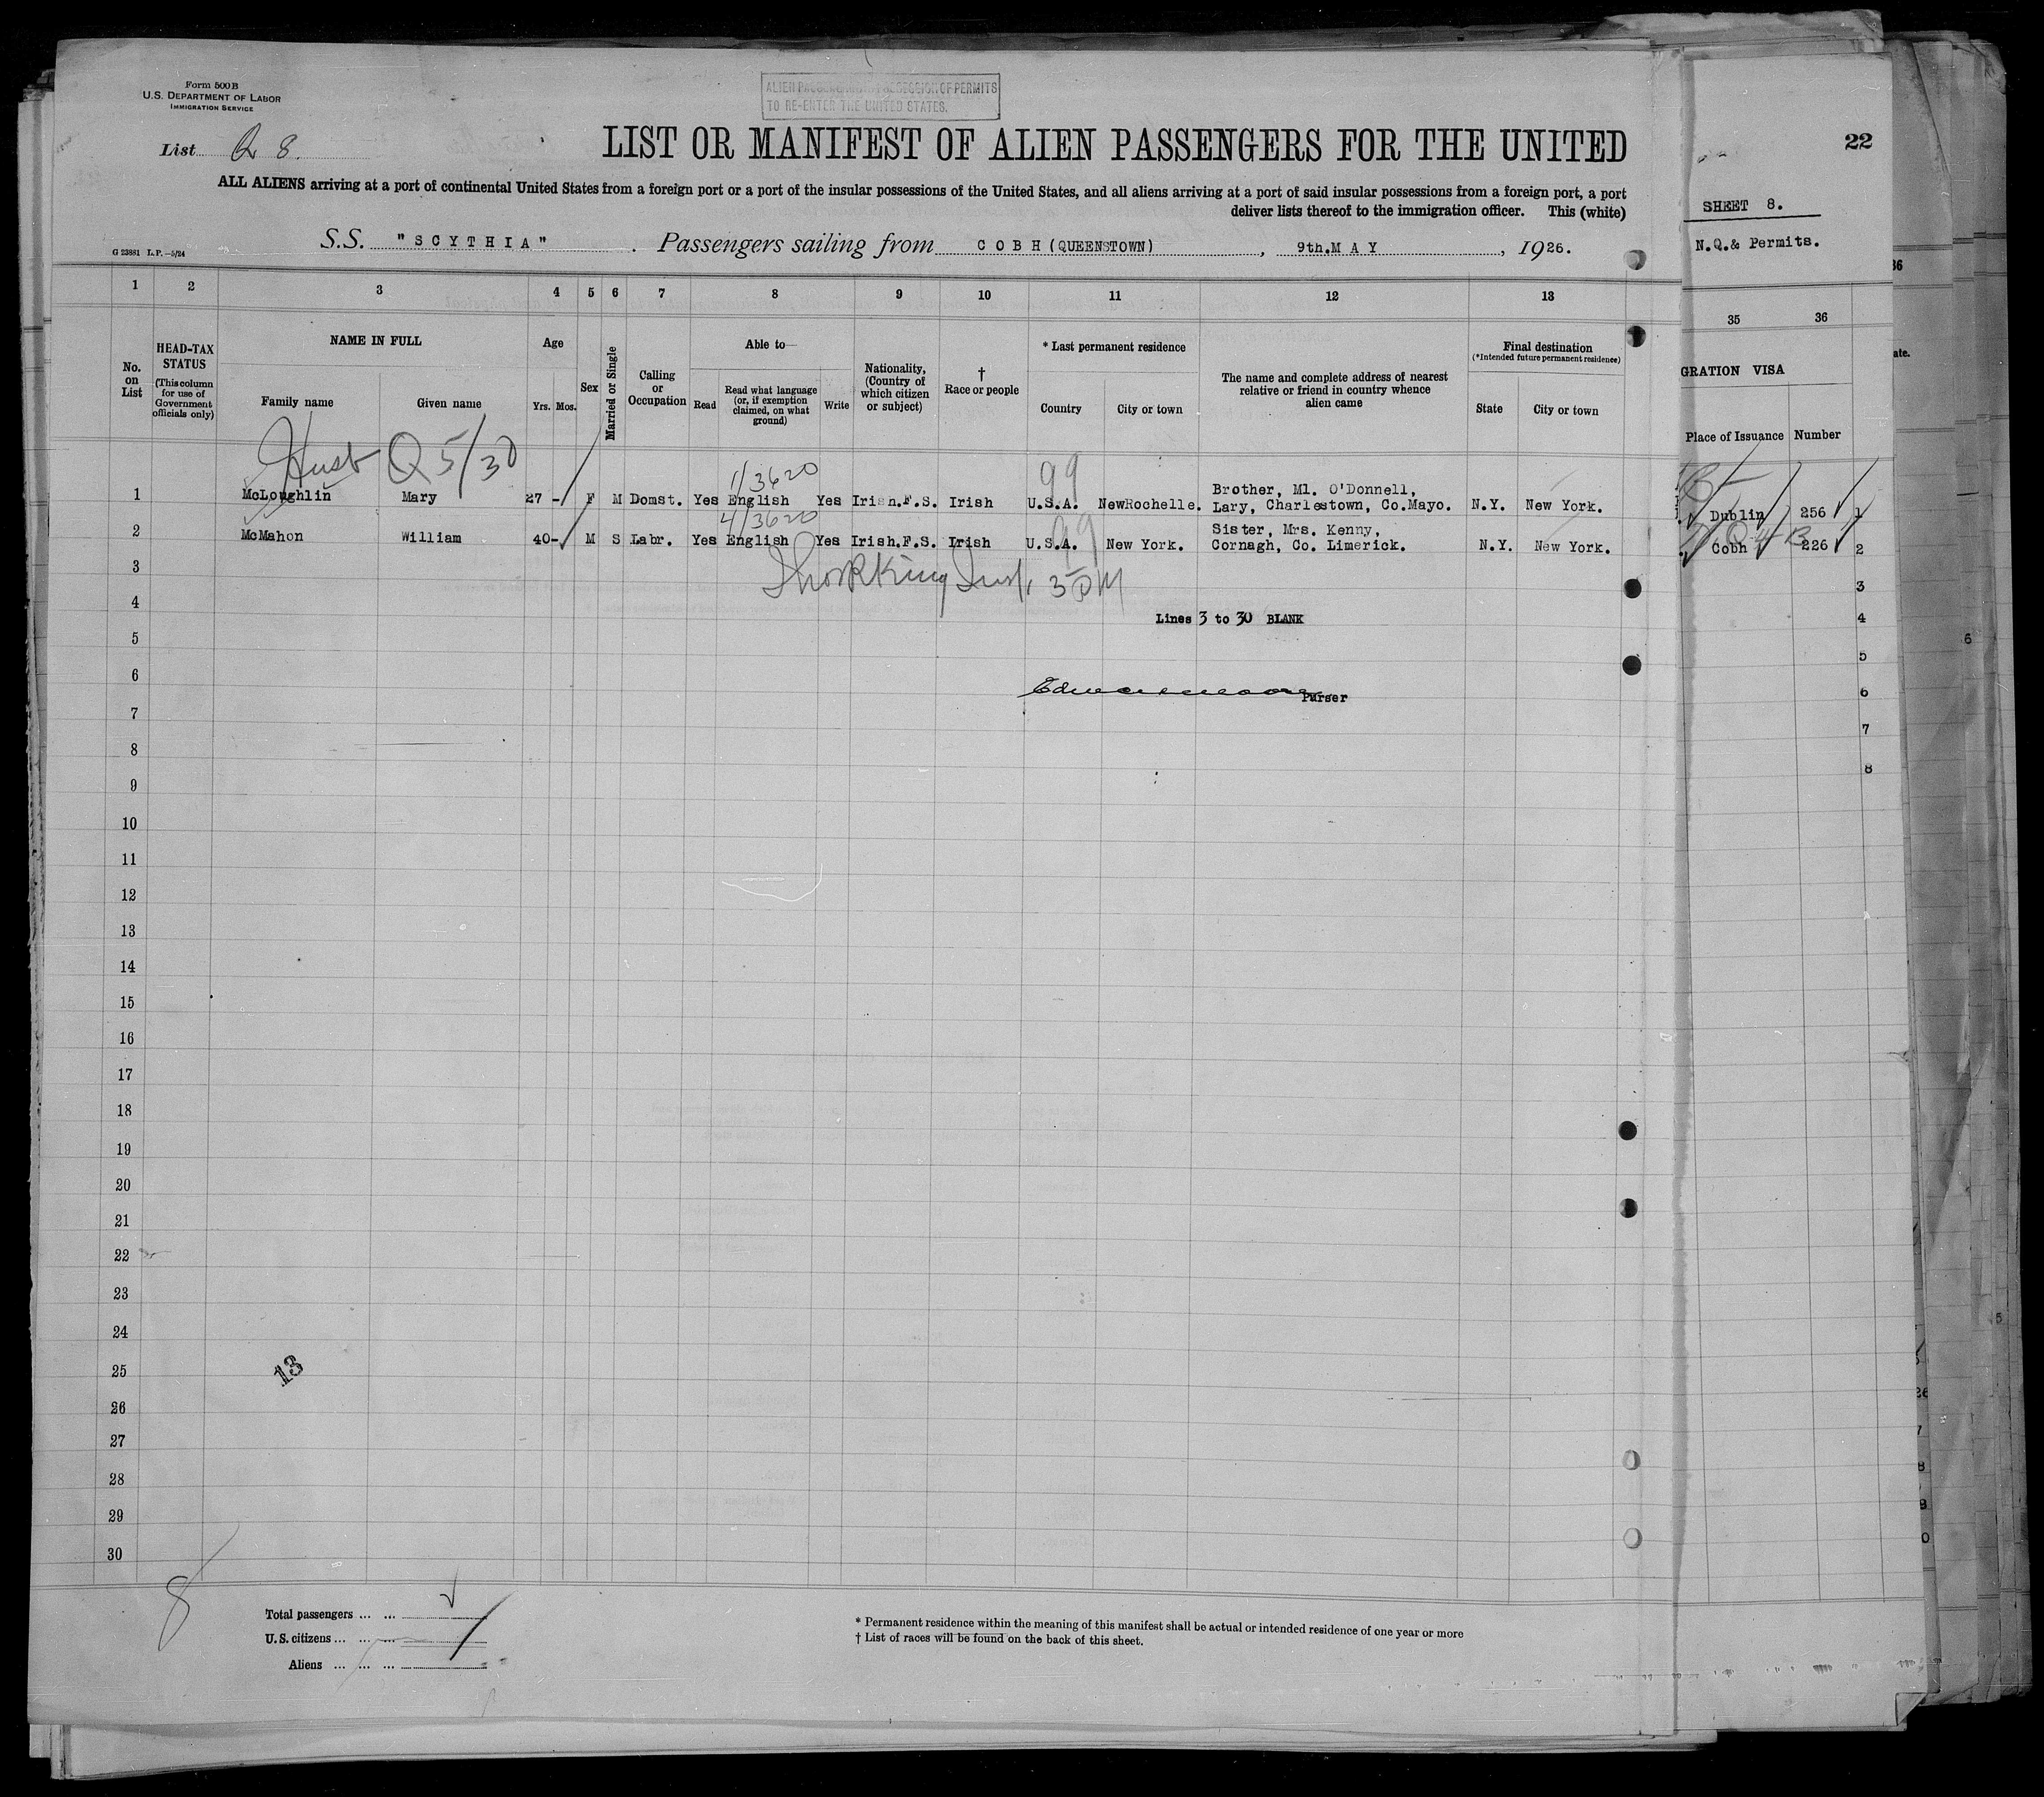 Form 500 B
U.S. DEPARTMENT OF LABOR
IMMIGRATION SERVICE
ALIEN PASSENGERS IN POSSESSION OF PERMITS
TO RE-ENTER THE UNITED STATES.
List Q 8.
LIST OR MANIFEST OF ALIEN PASSENGERS FOR THE UNITED
22
ALL ALIENS arriving at a port of continental United States from a foreign port or a port of the insular possessions of the United States, and all aliens arriving at a port of said insular possessions from a foreign port, a port
deliver lists thereof to the immigration officer. This (white)
SHEET 8.
N.Q.& Permits.
G 23881 L.P.—5/24
S.S. "SCYTHIA". Passengers sailing from COBH (QUEENSTOWN), 9th. MAY, 1926.
1 2 3 4 5 6 7 8 9 10 11 12 13 35 36
No. on List
HEAD-TAX STATUS
(This column for use of Government officials only)
NAME IN FULL
Family name
Given name
Age
Yrs. Mos.
Sex
Married or Single
Calling or Occupation
Able to—
Read
Read what language (or, if exemption claimed, on what ground)
Write
Nationality, (Country of which citizen or subject)
† Race or people
* Last permanent residence
Country
City or town
The name and complete address of nearest relative or friend in country whence alien came
Final destination
(*Intended future permanent residence)
State
City or town
GRATION VISA
Place of Issuance
Number
Q 5/30
1/3620
99
1 McLoughlin Mary 27 - F M Domst. Yes English Yes Irish.F.S. Irish U.S.A. NewRochelle. Brother, Ml. O'Donnell, Lary, Charlestown, Co.Mayo. N.Y. New York. Dublin 256 1
4/3620
99
2 McMahon William 40- M S Labr. Yes English Yes Irish.F.S. Irish U.S.A. New York. Sister, Mrs. Kenny, Cornagh, Co. Limerick. N.Y. New York. Cobh 226 2
3 3
4 Lines 3 to 30 BLANK 4
5 5
6 Purser 6
7 7
8 8
9
10
11
12
13
14
15
16
17
18
19
20
21
22
23
24
25
13
26
27
28
29
30
8
Total passengers
U.S. citizens
Aliens
* Permanent residence within the meaning of this manifest shall be actual or intended residence of one year or more
† List of races will be found on the back of this sheet.